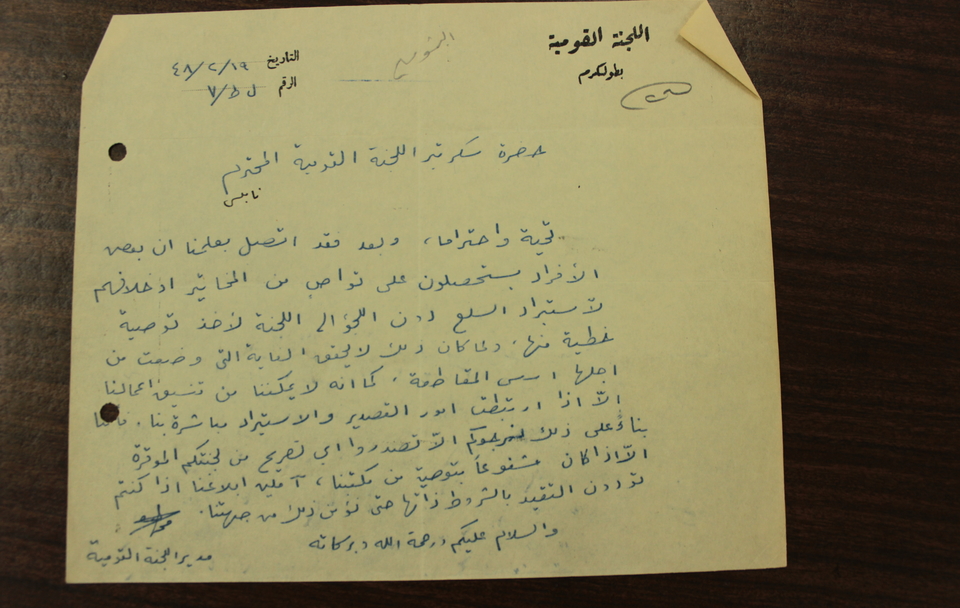 اللجنة القومية
بطولكرم
التاريخ ١٩/٢/٤٨
الرقم ل ط/٧
حضرة سكرتير اللجنة القومية المحترم
نابلس
تحية واحتراما، وبعد فقد اتصل بعلمنا ان بعض
الأفراد يستحصلون على تواصٍ من المخاتير او خلافهم
لاستيراد السلع دون اللجؤ الى اللجنة لأخذ توصية
خطية منها. ولما كان ذلك لا يحقق الغاية التي وضعت من
اجلها اسس المقاطعة. كما انه لا يمكننا من تنسيق اعمالنا
الاّ اذا ارتبطت امور التصدير والاستيراد مباشرة بنا. فاننا
بناءً على ذلك نرجوكم الاّ تصدروا اي تصريح من لجنتكم الموقرة
الاّ اذا كان مشفوعاً بتوصية من مكتبنا، آملين ابلاغنا اذا كنتم
تودون التقيد بالشروط ذاتها حتى نؤمن ذلك من جهتنا.
والسلام عليكم ورحمة الله وبركاته
مدير اللجنة القومية